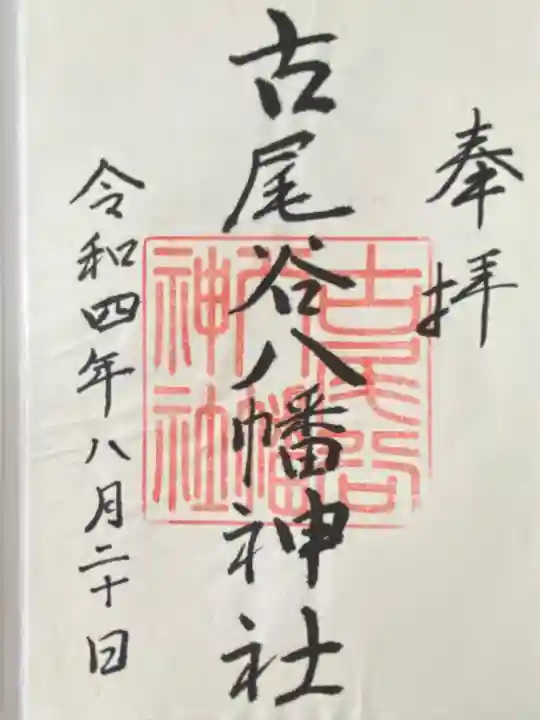 奉拝
古尾谷八幡神社
古尾谷
八幡
神社
令和四年八月二十日